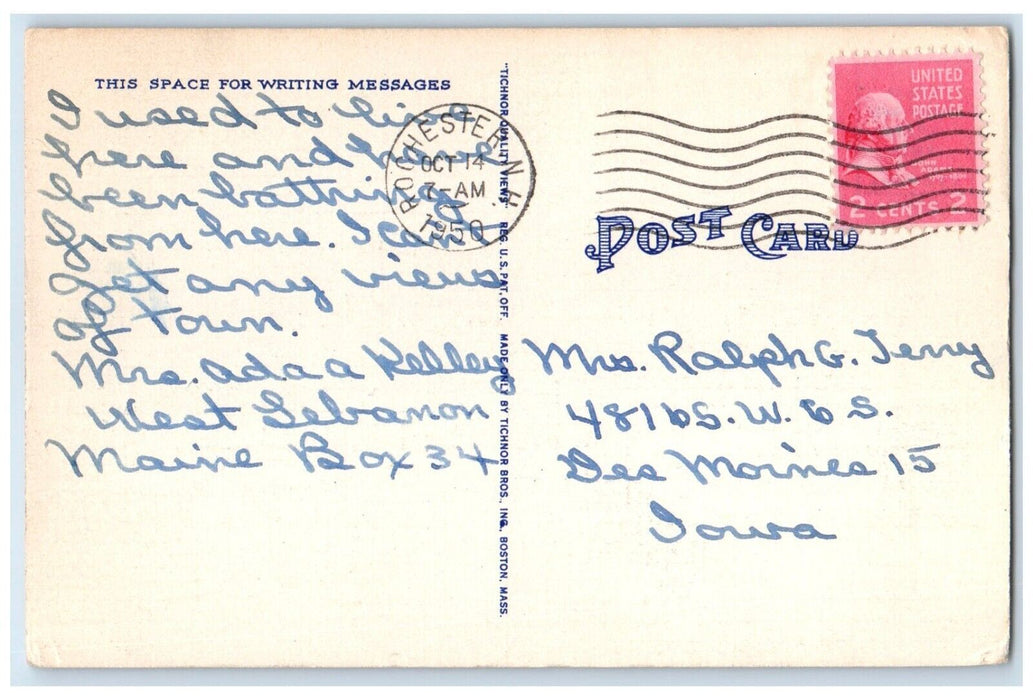 THIS SPACE FOR WRITING MESSAGES
I used to live
here and have
been batthing
from here. I can
get any views
of town.
Mrs. ada a Kelley
West Lebanon
Maine Box 34
"TICHNOR QUALITY VIEWS" REG. U.S. PAT. OFF. MADE ONLY BY TICHNOR BROS., INC., BOSTON, MASS.
ROCHESTER N.H.
OCT 14
7-AM
1950
UNITED
STATES
POSTAGE
2 CENTS 2
POST CARD
Mrs. Ralph G. Terry
S.W.
Des Moines 15
Iowa